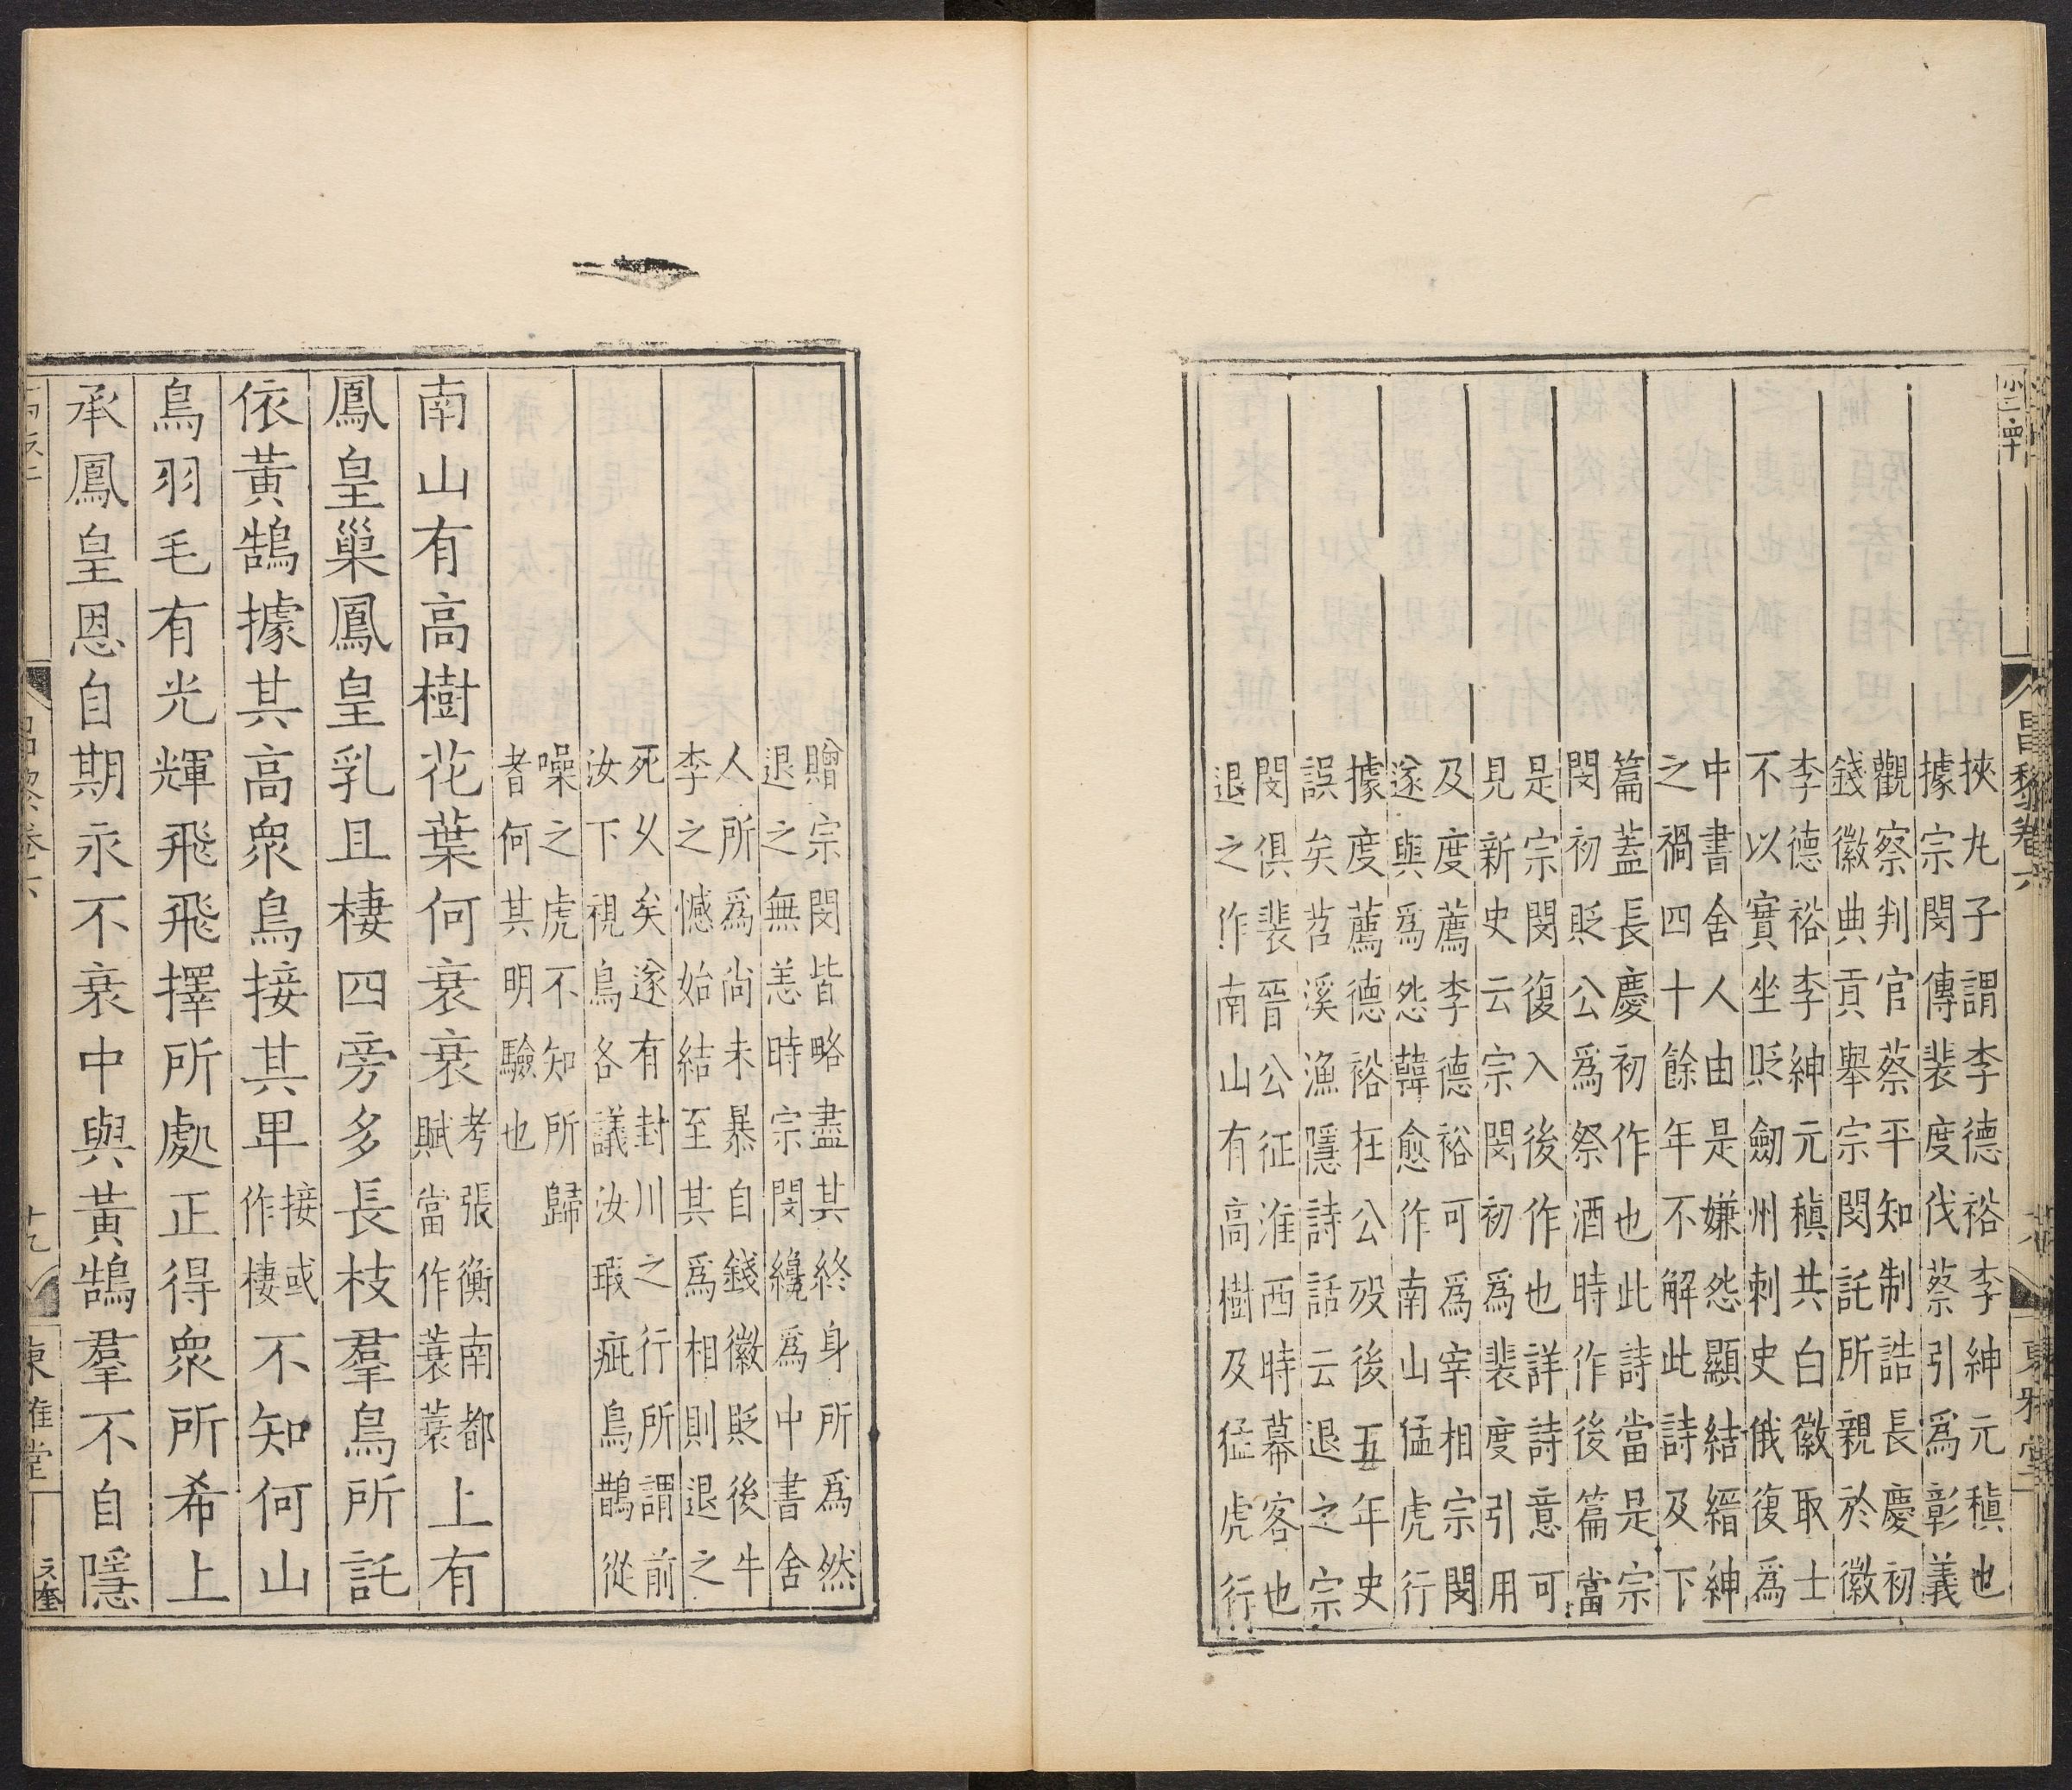 挾九子謂李德裕李紳元稹也
據宗閔傳裴度伐蔡引爲彰義
觀察判官蔡平知制誥長慶初
錢徽典貢舉宗閔託所親於徽
李德裕李紳元稹共白徽取士
不以實坐貶劒州刺史俄復爲
中書舍人由是嫌怨顯結縉紳
之禍四十餘年不解此詩及下
篇蓋長慶初作也此詩當是宗
閔初貶公爲祭酒時作後篇當
是宗閔復入後作也詳詩意可
見新史云宗閔初爲裴度引用
及度薦李德裕可爲宰相宗閔
遂與爲怨韓愈作南山猛虎行
據度薦德裕在公歿後五年史
誤矣苕溪漁隱詩話云退之宗
閔俱裴晉公征淮西時幕客也
退之作南山有高樹及猛虎行
昌黎卷六
贈宗閔皆略盡其終身所爲然
退之無恙時宗閔纔爲中書舍
人所爲尚未暴自錢徽貶後牛
李之憾始結至其爲相則退之
死久矣遂有封川之行所謂前
汝下視鳥各議汝瑕疵鳥鵲從
噪之虎不知所歸
者何其明驗也
南山有高樹花葉何衰衰考張衡南都賦當作蓑蓑上有
鳳皇巢鳳皇乳且棲四旁多長枝羣鳥所託
依黃鵠據其高衆鳥接其卑接或作棲不知何山
鳥羽毛有光輝飛飛擇所處正得衆所希上
承鳳皇恩自期永不衰中與黃鵠羣不自隱
東雅堂